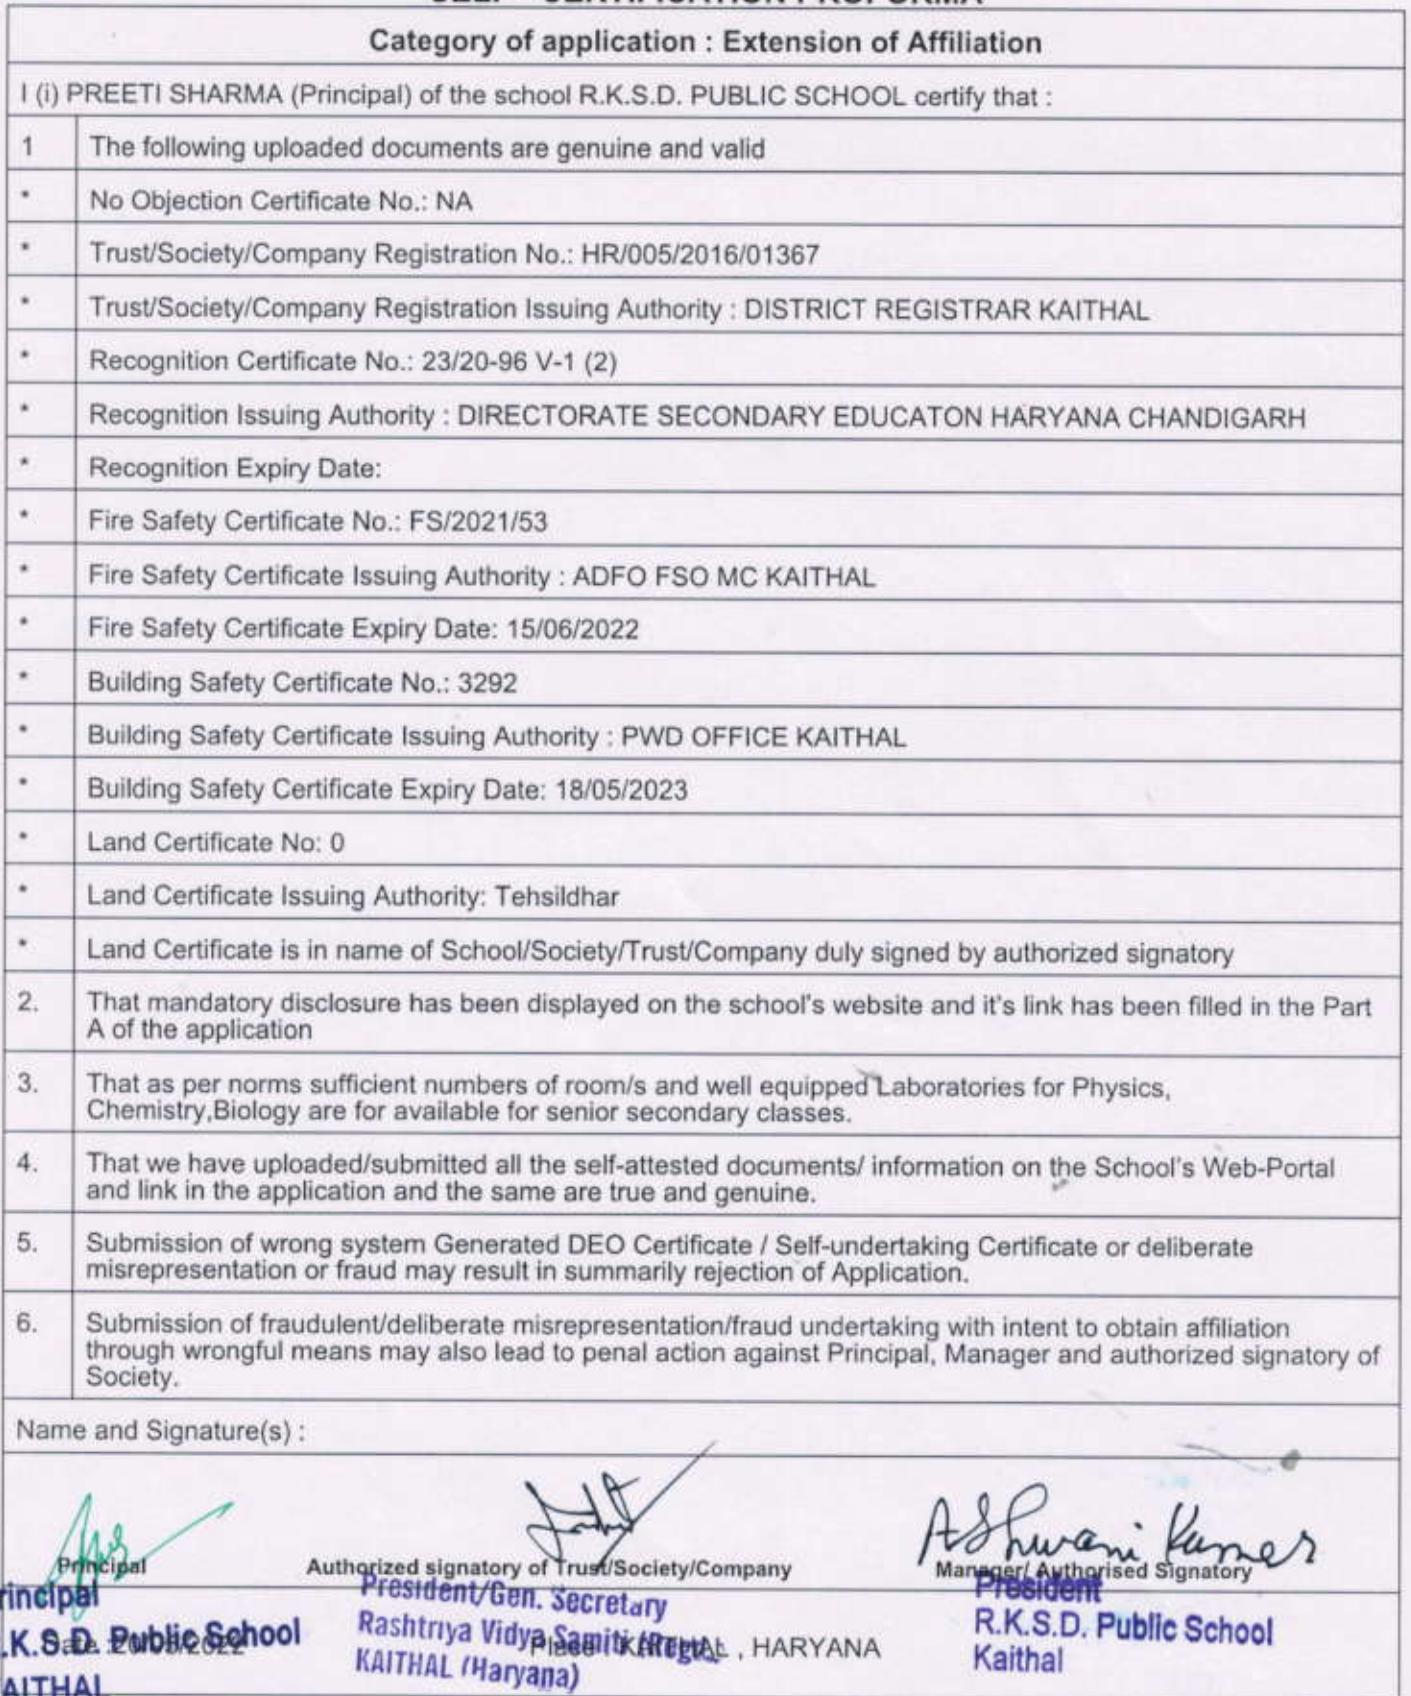 Category of application : Extension of Affiliation
I (i) PREETI SHARMA (Principal) of the school R.K.S.D. PUBLIC SCHOOL certify that :
1 The following uploaded documents are genuine and valid
* No Objection Certificate No.: NA
* Trust/Society/Company Registration No.: HR/005/2016/01367
* Trust/Society/Company Registration Issuing Authority : DISTRICT REGISTRAR KAITHAL
* Recognition Certificate No.: 23/20-96 V-1 (2)
* Recognition Issuing Authority : DIRECTORATE SECONDARY EDUCATON HARYANA CHANDIGARH
* Recognition Expiry Date:
* Fire Safety Certificate No.: FS/2021/53
* Fire Safety Certificate Issuing Authority : ADFO FSO MC KAITHAL
* Fire Safety Certificate Expiry Date: 15/06/2022
* Building Safety Certificate No.: 3292
* Building Safety Certificate Issuing Authority : PWD OFFICE KAITHAL
* Building Safety Certificate Expiry Date: 18/05/2023
* Land Certificate No: 0
* Land Certificate Issuing Authority: Tehsildhar
* Land Certificate is in name of School/Society/Trust/Company duly signed by authorized signatory
2. That mandatory disclosure has been displayed on the school's website and it's link has been filled in the Part
A of the application
3. That as per norms sufficient numbers of room/s and well equipped Laboratories for Physics,
Chemistry,Biology are for available for senior secondary classes.
4. That we have uploaded/submitted all the self-attested documents/ information on the School's Web-Portal
and link in the application and the same are true and genuine.
5. Submission of wrong system Generated DEO Certificate / Self-undertaking Certificate or deliberate
misrepresentation or fraud may result in summarily rejection of Application.
6. Submission of fraudulent/deliberate misrepresentation/fraud undertaking with intent to obtain affiliation
through wrongful means may also lead to penal action against Principal, Manager and authorized signatory of
Society.
Name and Signature(s) :
Ashwani Kumar
Principal Authorized signatory of Trust/Society/Company Manager/ Authorised Signatory
rincipal President/Gen. Secretary President
.K.S.D. Public School Rashtriya Vidya Samiti R.K.S.D. Public School
Place KAITHAL , HARYANA
AITHAL KAITHAL (Haryana) Kaithal